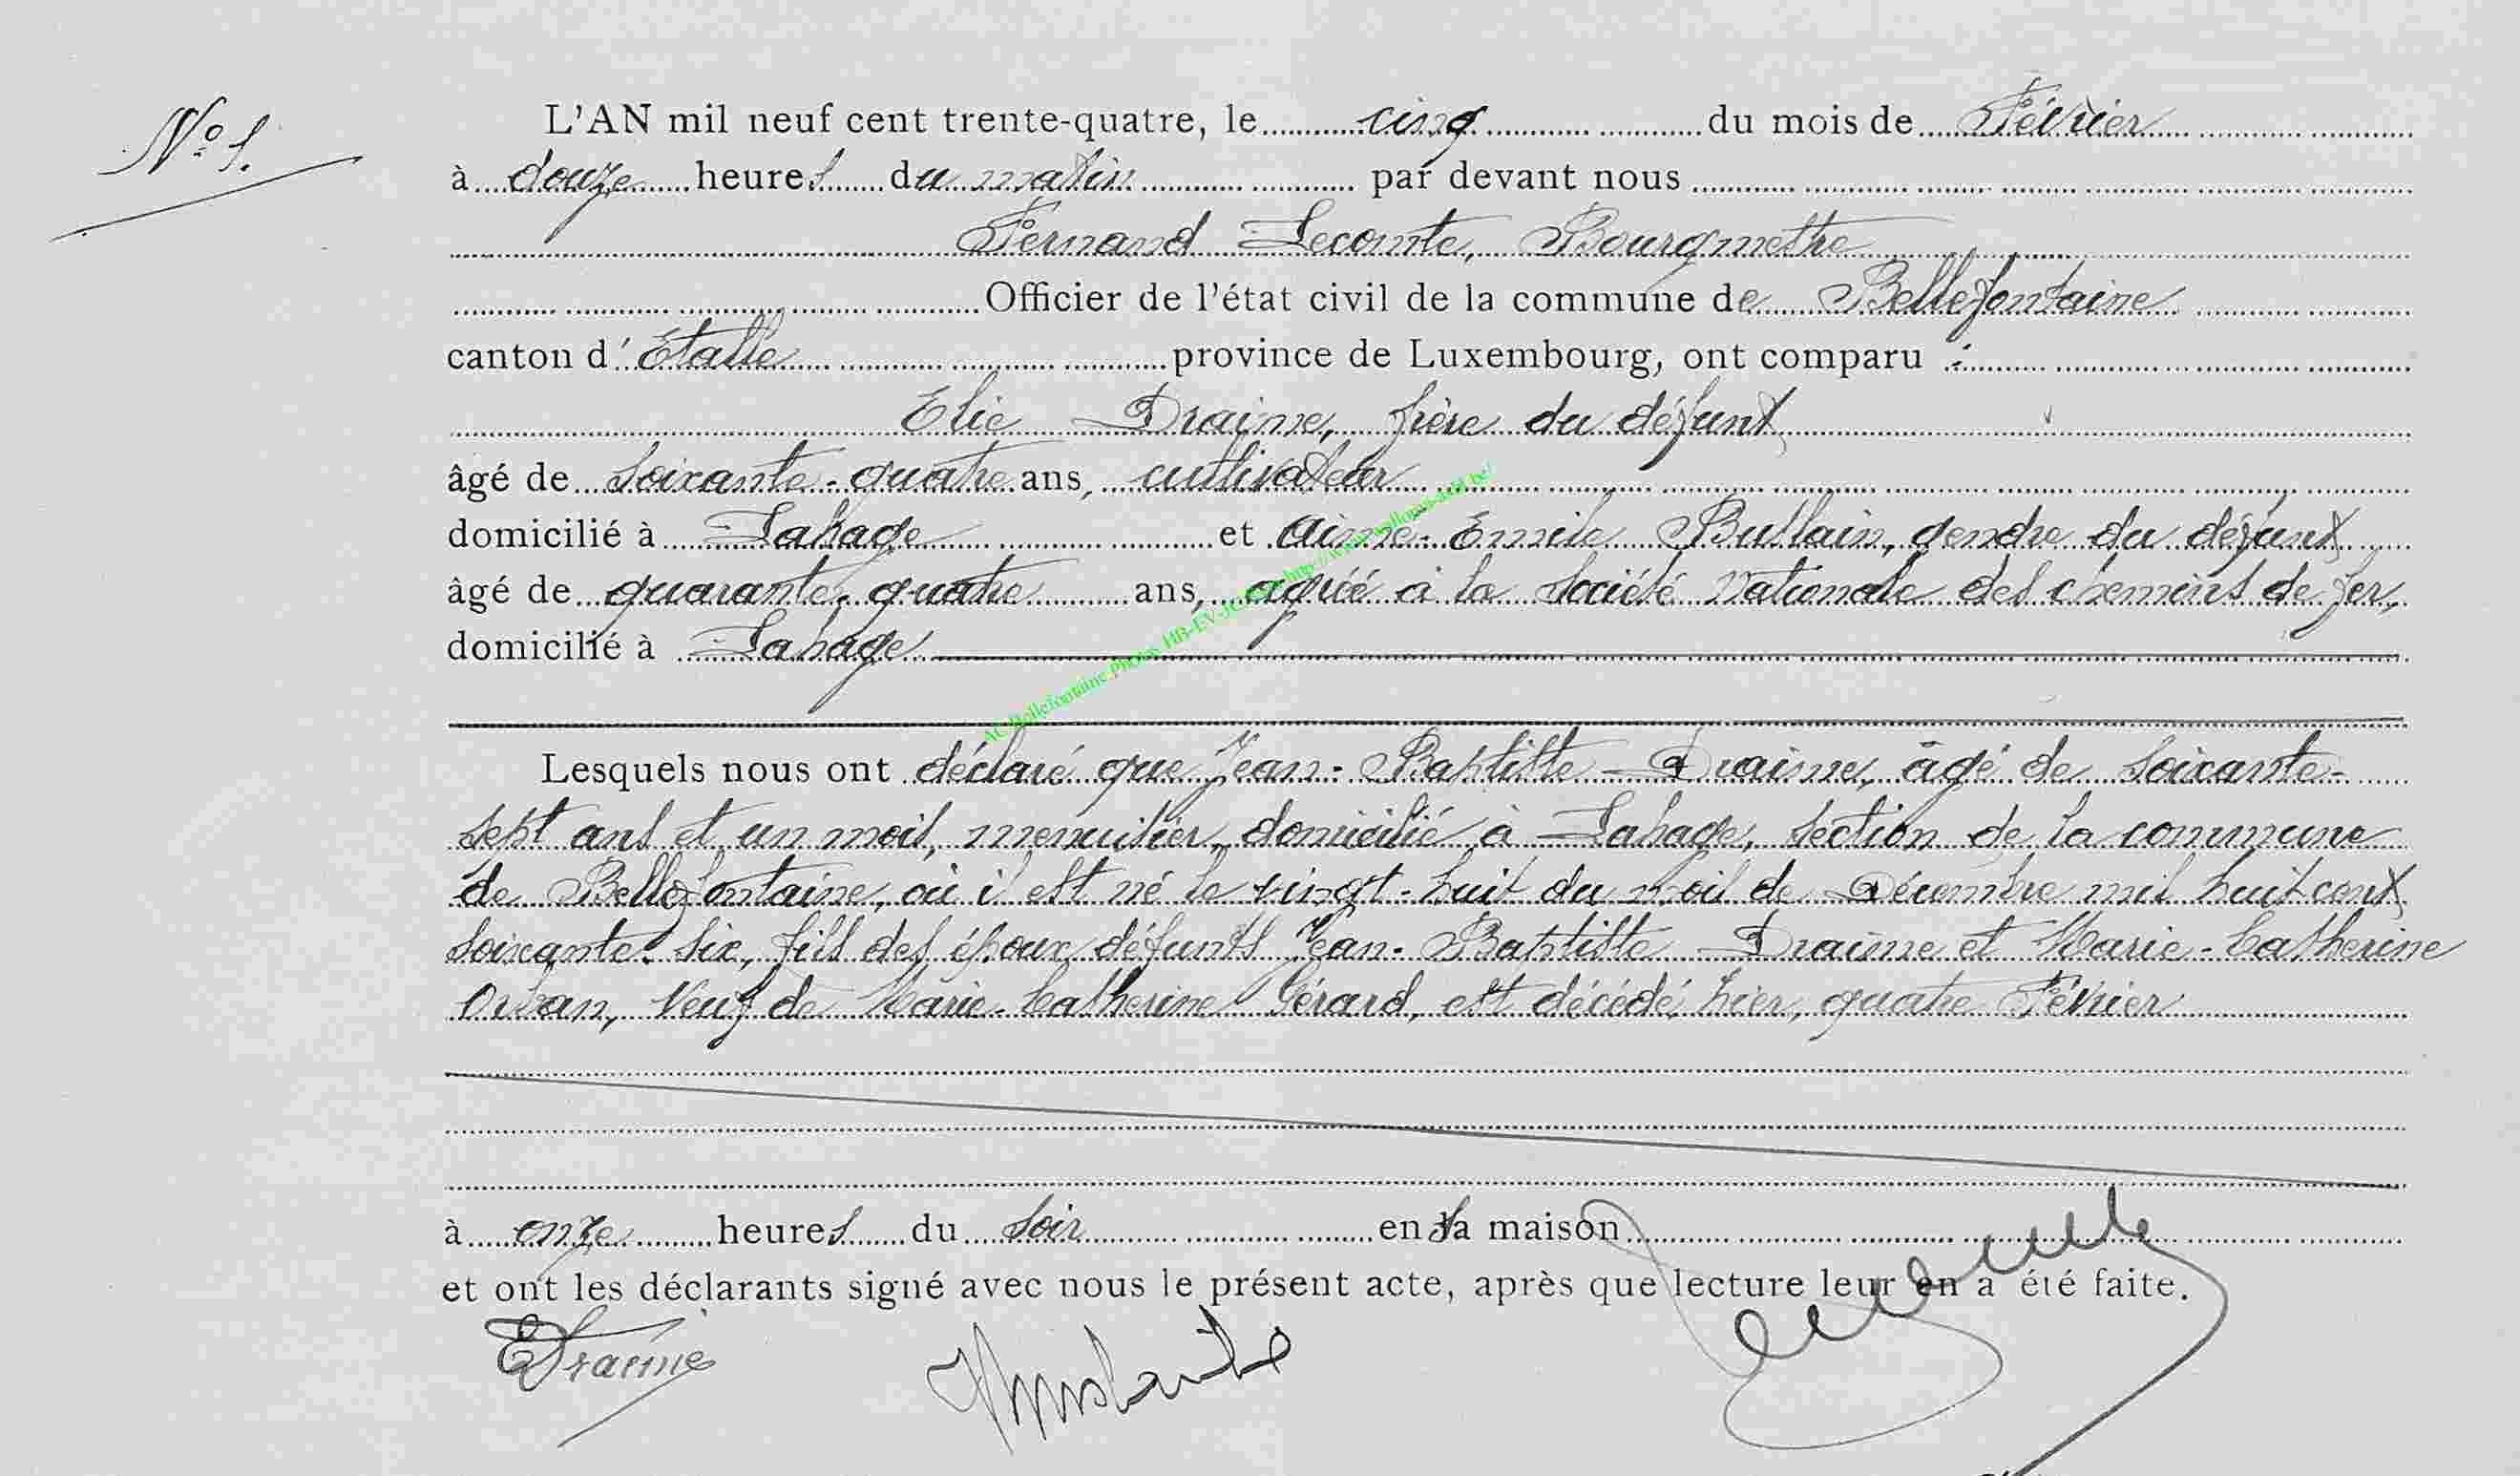 N° 1.
L'AN mil neuf cent trente-quatre, le cinq du mois de Février
à douze heures du matin par devant nous
Fernand Lecomte, Bourgmestre
Officier de l'état civil de la commune de Bellefontaine
canton d'Etalle province de Luxembourg, ont comparu :
Elie Draime, frère du défunt
âgé de soixante-quatre ans, cultivateur
domicilié à Lahage et Aimé-Emile Bullain, gendre du défunt
âgé de quarante-quatre ans, agréé à la Société Nationale des chemins de fer,
domicilié à Lahage
AC Bellefontaine Photos HB-EV-
Lesquels nous ont déclaré que Jean-Baptiste Draime, âgé de soixante-
sept ans et un mois, menuisier, domicilié à Lahage, section de la commune
de Bellefontaine, où il est né le vingt-huit du mois de Décembre mil huit cent
soixante-six, fils des époux défunts Jean-Baptiste Draime et Marie-Catherine
Orban, Veuf de Marie-Catherine Gérard, est décédé hier, quatre Février
à onze heures du soir en sa maison
et ont les déclarants signé avec nous le présent acte, après que lecture leur en a été faite.
EDraime